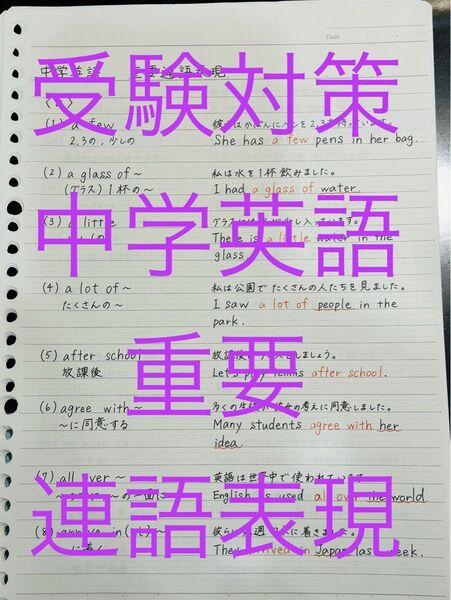 受験対策
中学英語
重要
連語表現
Date
中学英語 重要連語表現
(1) a few
2,3の, 少しの
彼女はかばんにペンを2,3本持っています。
She has a few pens in her bag.
(2) a glass of ~
(グラス) 1杯の~
私は水を1杯飲みました。
I had a glass of water.
(3) a little
There is a little water in the
glass.
(4) a lot of ~
たくさんの~
私は公園でたくさんの人たちを見ました。
I saw a lot of people in the
park.
(5) after school
放課後
放課後 しましょう。
Let's play tennis after school.
(6) agree with ~
~に同意する
多くの生徒が の考えに同意しました。
Many students agree with her
idea.
(7) all over ~
の一面に
英語は世界中で使われています
English is used all over the world.
(8) arrive in(at) ~
に着く
彼らは 週 に着きました。
They arrived in Japan last week.